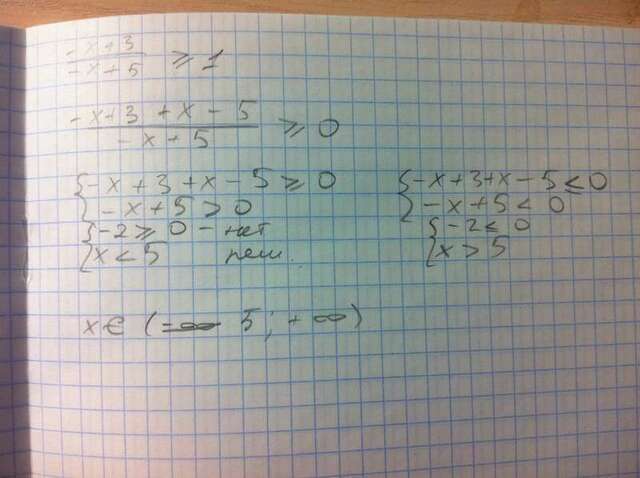 -x+3 / -x+5 ≥ 1
-x+3+x-5 / -x+5 ≥ 0
{-x+3+x-5≥0
-x+5>0
{-2≥0 - нет
x<5 реш.
{-x+3+x-5≤0
-x+5<0
{-2≤0
x>5
x∈(-∞ 5;+∞)